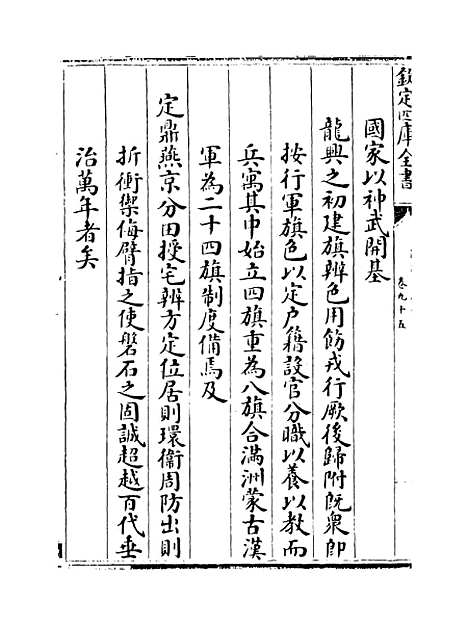 欽定四庫全書
卷九十五
國家以神武開基
龍興之初建旗辨色用飭戎行厥後歸附既衆即
按行軍旗色以定户籍設官分職以養以教而
兵寓其中始立四旗重為八旗合滿洲蒙古漢
軍為二十四旗制度備焉及
定鼎燕京分田授宅辨方定位居則環衞周防出則
折衝禦侮臂指之使磐石之固誠超越百代垂
治萬年者矣